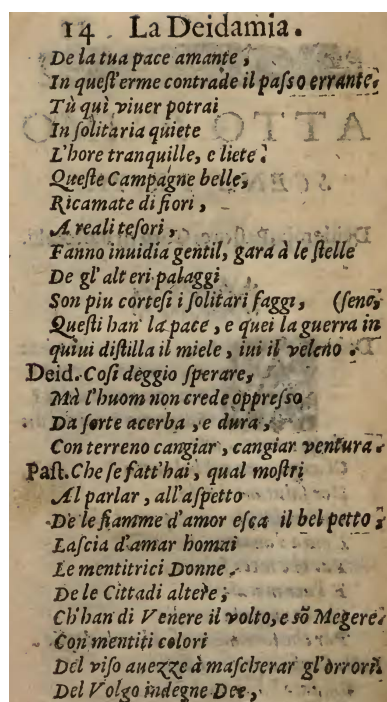 14 La Deidamia.
De la tua pace amante,
In quest'erme contrade il passo errante.
Tù quì viuer potrai
In solitaria quiete
L'hore tranquille, e liete.
Queste Campagne belle,
Ricamate di fiori,
A reali tesori,
Fanno inuidia gentil, gara à le stelle
De gl'alteri palaggi
Son piu cortesi i solitari faggi, (seno,
Questi han la pace, e quei la guerra in
quiui distilla il miele, iui il veleno.
Deid. Cosi deggio sperare,
Mà l'huom non crede oppresso
Da sorte acerba, e dura,
Con terreno cangiar, cangiar ventura.
Past. Che se fatt'hai, qual mostri
Al parlar, all'aspetto
De le fiamme d'amor esca il bel petto;
Lascia d'amar homai
Le mentitrici Donne
De le Cittadi altere;
Ch'han di Venere il volto, e sõ Megere.
Con mentiti colori
Del viso auezze à mascherar gl'orrori.
Del Volgo indegne Dee,